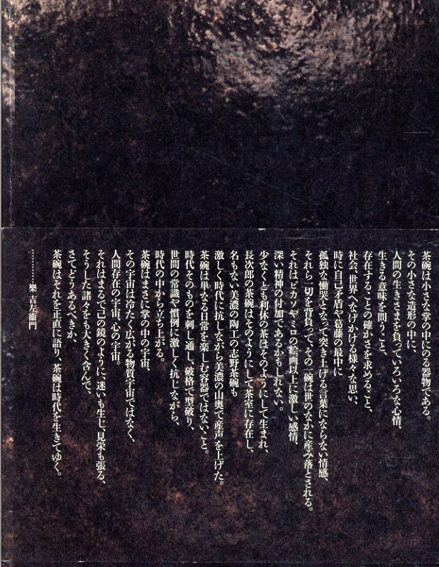 茶碗は小さな掌の中にのる器物である。
その小さな造形の中に、
人間の生きざまを負っていろいろな心情、
生きる意味を問うこと、
存在することの確かさを求めること、
社会、世界へなげかける様々な思い、
時に自己矛盾や葛藤の最中に
孤独な慟哭となって突き上げる言葉にならない情感、
それら一切を背負って、その一碗は世のなかに産み落とされる。
それはピカソやミロの絵画以上に激しい感情、
深い精神の付加であるかもしれない。
少なくとも利休の茶はそのようにして生まれ、
長次郎の茶碗はそのようにして茶室に存在し、
名もない美濃の陶工の志野茶碗も
激しく時代に抗しながら美濃の山奥で産声を上げた。
茶碗は単なる日常を楽しむ容器ではないこと。
時代そのものを刺し通し、破格で型破り、
世間の常識や慣例に激しく抗じながら、
時代の中から立ち上がる。
茶碗はまさに掌の中の宇宙、
その宇宙は冷たく広がる物質宇宙ではなく、
人間存在の宇宙、心の宇宙。
それはまるで己の鏡のように、迷いも生じ、見栄も張る、
そうした諸々をも大きく含んで、
さてどうあるべきか、
茶碗はそれを正直に語り、茶碗は時代を生きてゆく。
…………樂 吉左衞門